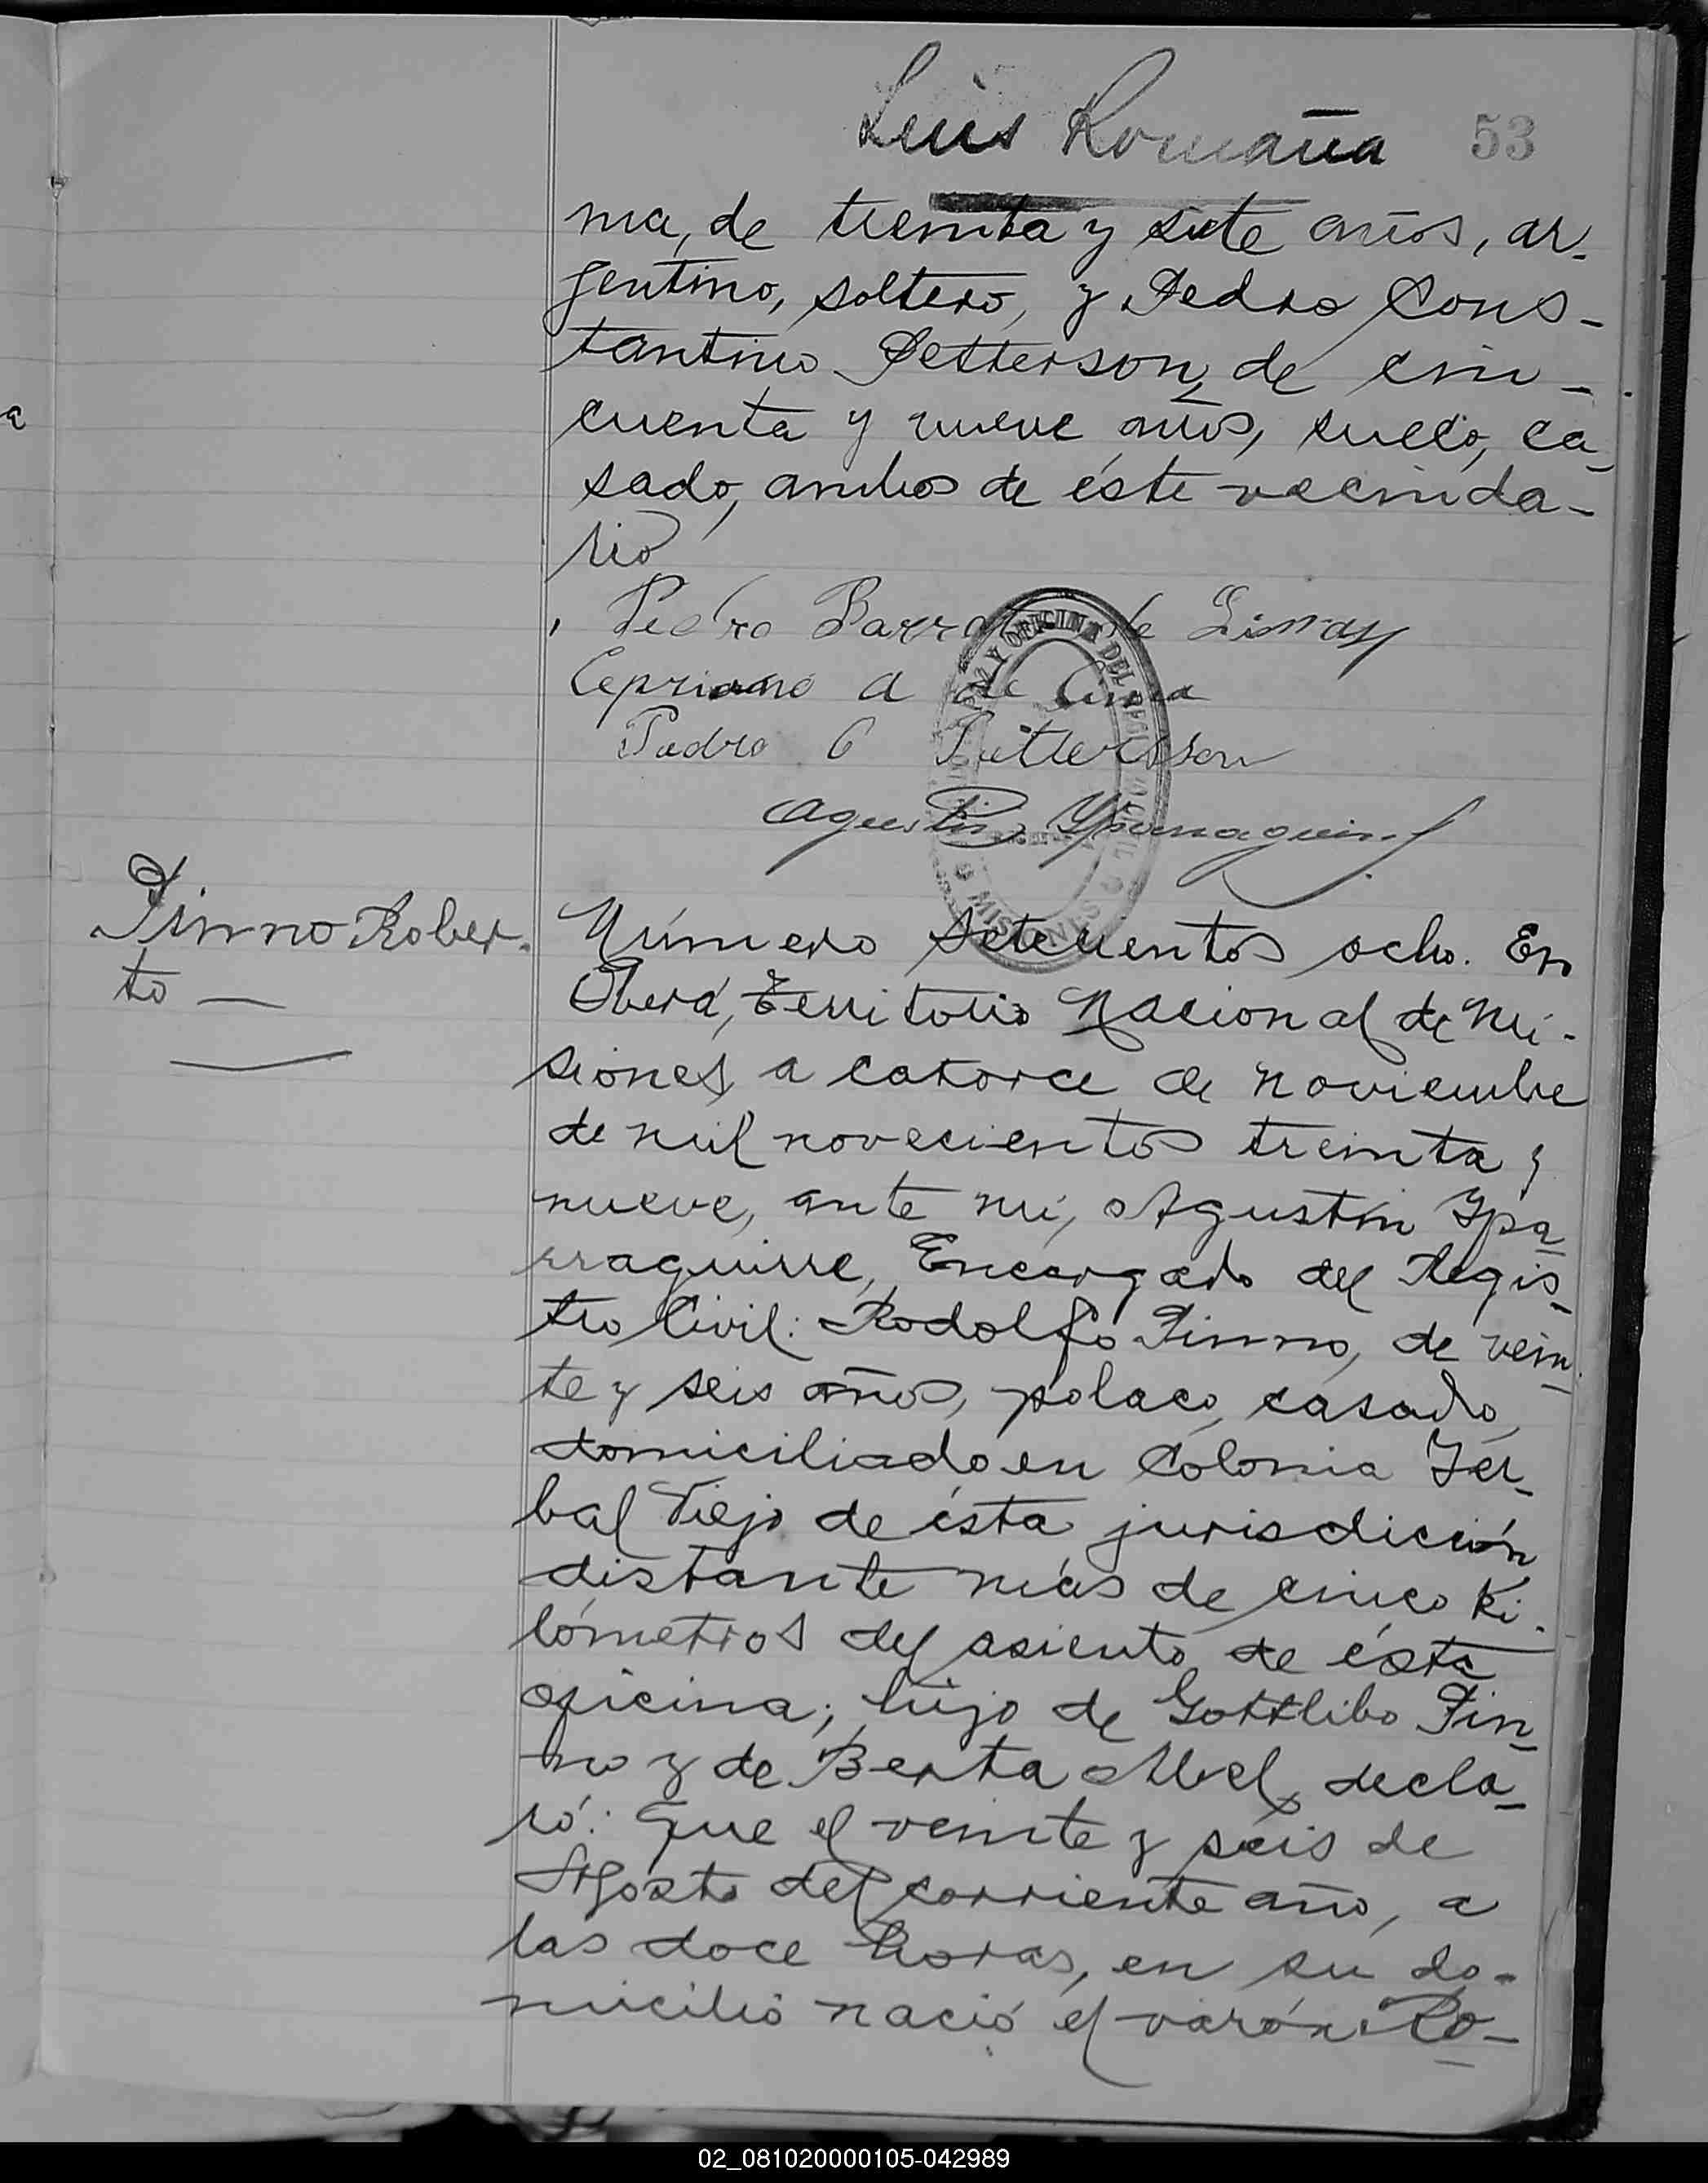 Luis Romaña 53
ma, de treinta y siete años, ar-
gentino, soltero, y Pedro Cons-
tantino Petterson, de cin-
cuenta y nueve años, sueco, ca-
sado, ambos de éste vecinda-
rio
Pedro de
Cepriano A de Lima
Pedro C Pettersson
Agustin Yparraguirre
Y OFICINA DEL CIVIL
MISIONES
Pinno Rober-
to —
Número setecientos ocho. En
Oberá, Territorio Nacional de Mi-
siones, a catorce de noviembre
de mil novecientos treinta y
nueve, ante mí, Agustín Ypa-
rraguirre, Encargado del Regis-
tro Civil: Rodolfo Pinno, de vein-
te y seis años, polaco, casado,
domiciliado en Colonia Yer-
bal Viejo de ésta jurisdicción
distante más de cinco ki-
lómetros del asiento de ésta
oficina; hijo de Gottlibo Pin-
no y de Berta Abel, decla-
ró: Que el veinte y seis de
Agosto del corriente año, a
las doce horas, en su do-
micilio nació el varón Ro-
02_081020000105-042989